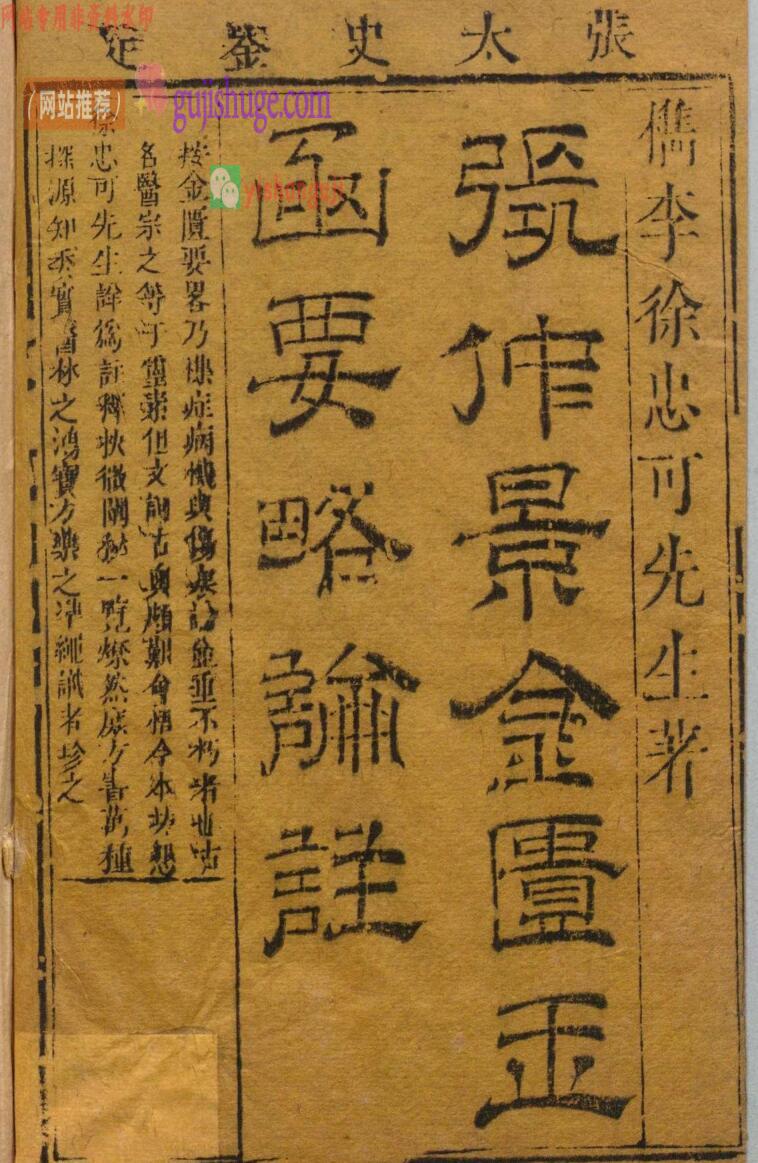 网站专用非资料水印
張太史鑒定
(网站推荐)
gujishuge.com
yishanguji
儁李徐忠可先生著
張仲景金匱玉
函要略論註
按金匱要畧乃襍症病機與傷寒論並垂不朽者也古
名醫宗之等于靈素但文詞古奧頗難會悟今本坊懇
徐忠可先生詳為註釋抉微闡秘一覽燎然庶方書萬種
探源知委實醫林之鴻寶方藥之準繩識者珍之